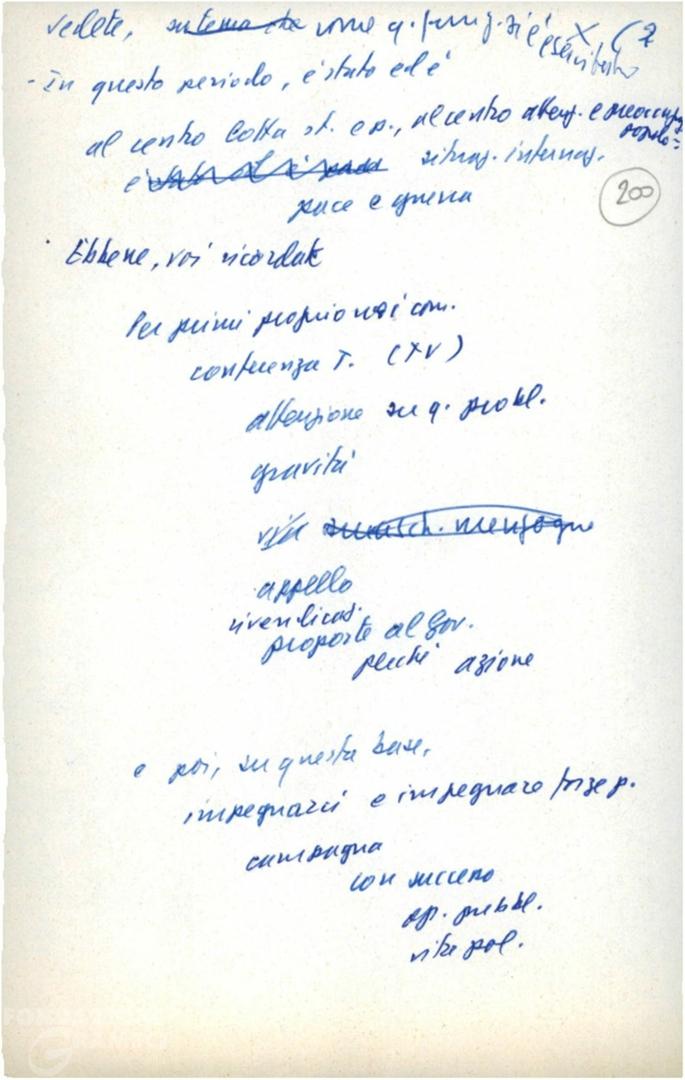 vedete, sistema che come q. funz. si è esercitata X (2
- In questo periodo, è stato ed è
al centro lotta st. e p., al centro attenz. e preoccupaz. popolo=
è stato ed è situaz. internaz.
pace e guerra
200
Ebbene, voi ricordate
Per primi proprio noi com.
conferenza T. (XV)
attenzione su q. probl.
gravità
smasch. menzogne
appello
rivendicaz.
proposte al Gov.
perché azione
e poi, su questa base,
impegnarci e impegnare forze p.
campagna
con successo
op. pubbl.
vita pol.
FONDAZIONE
GRAMSCI